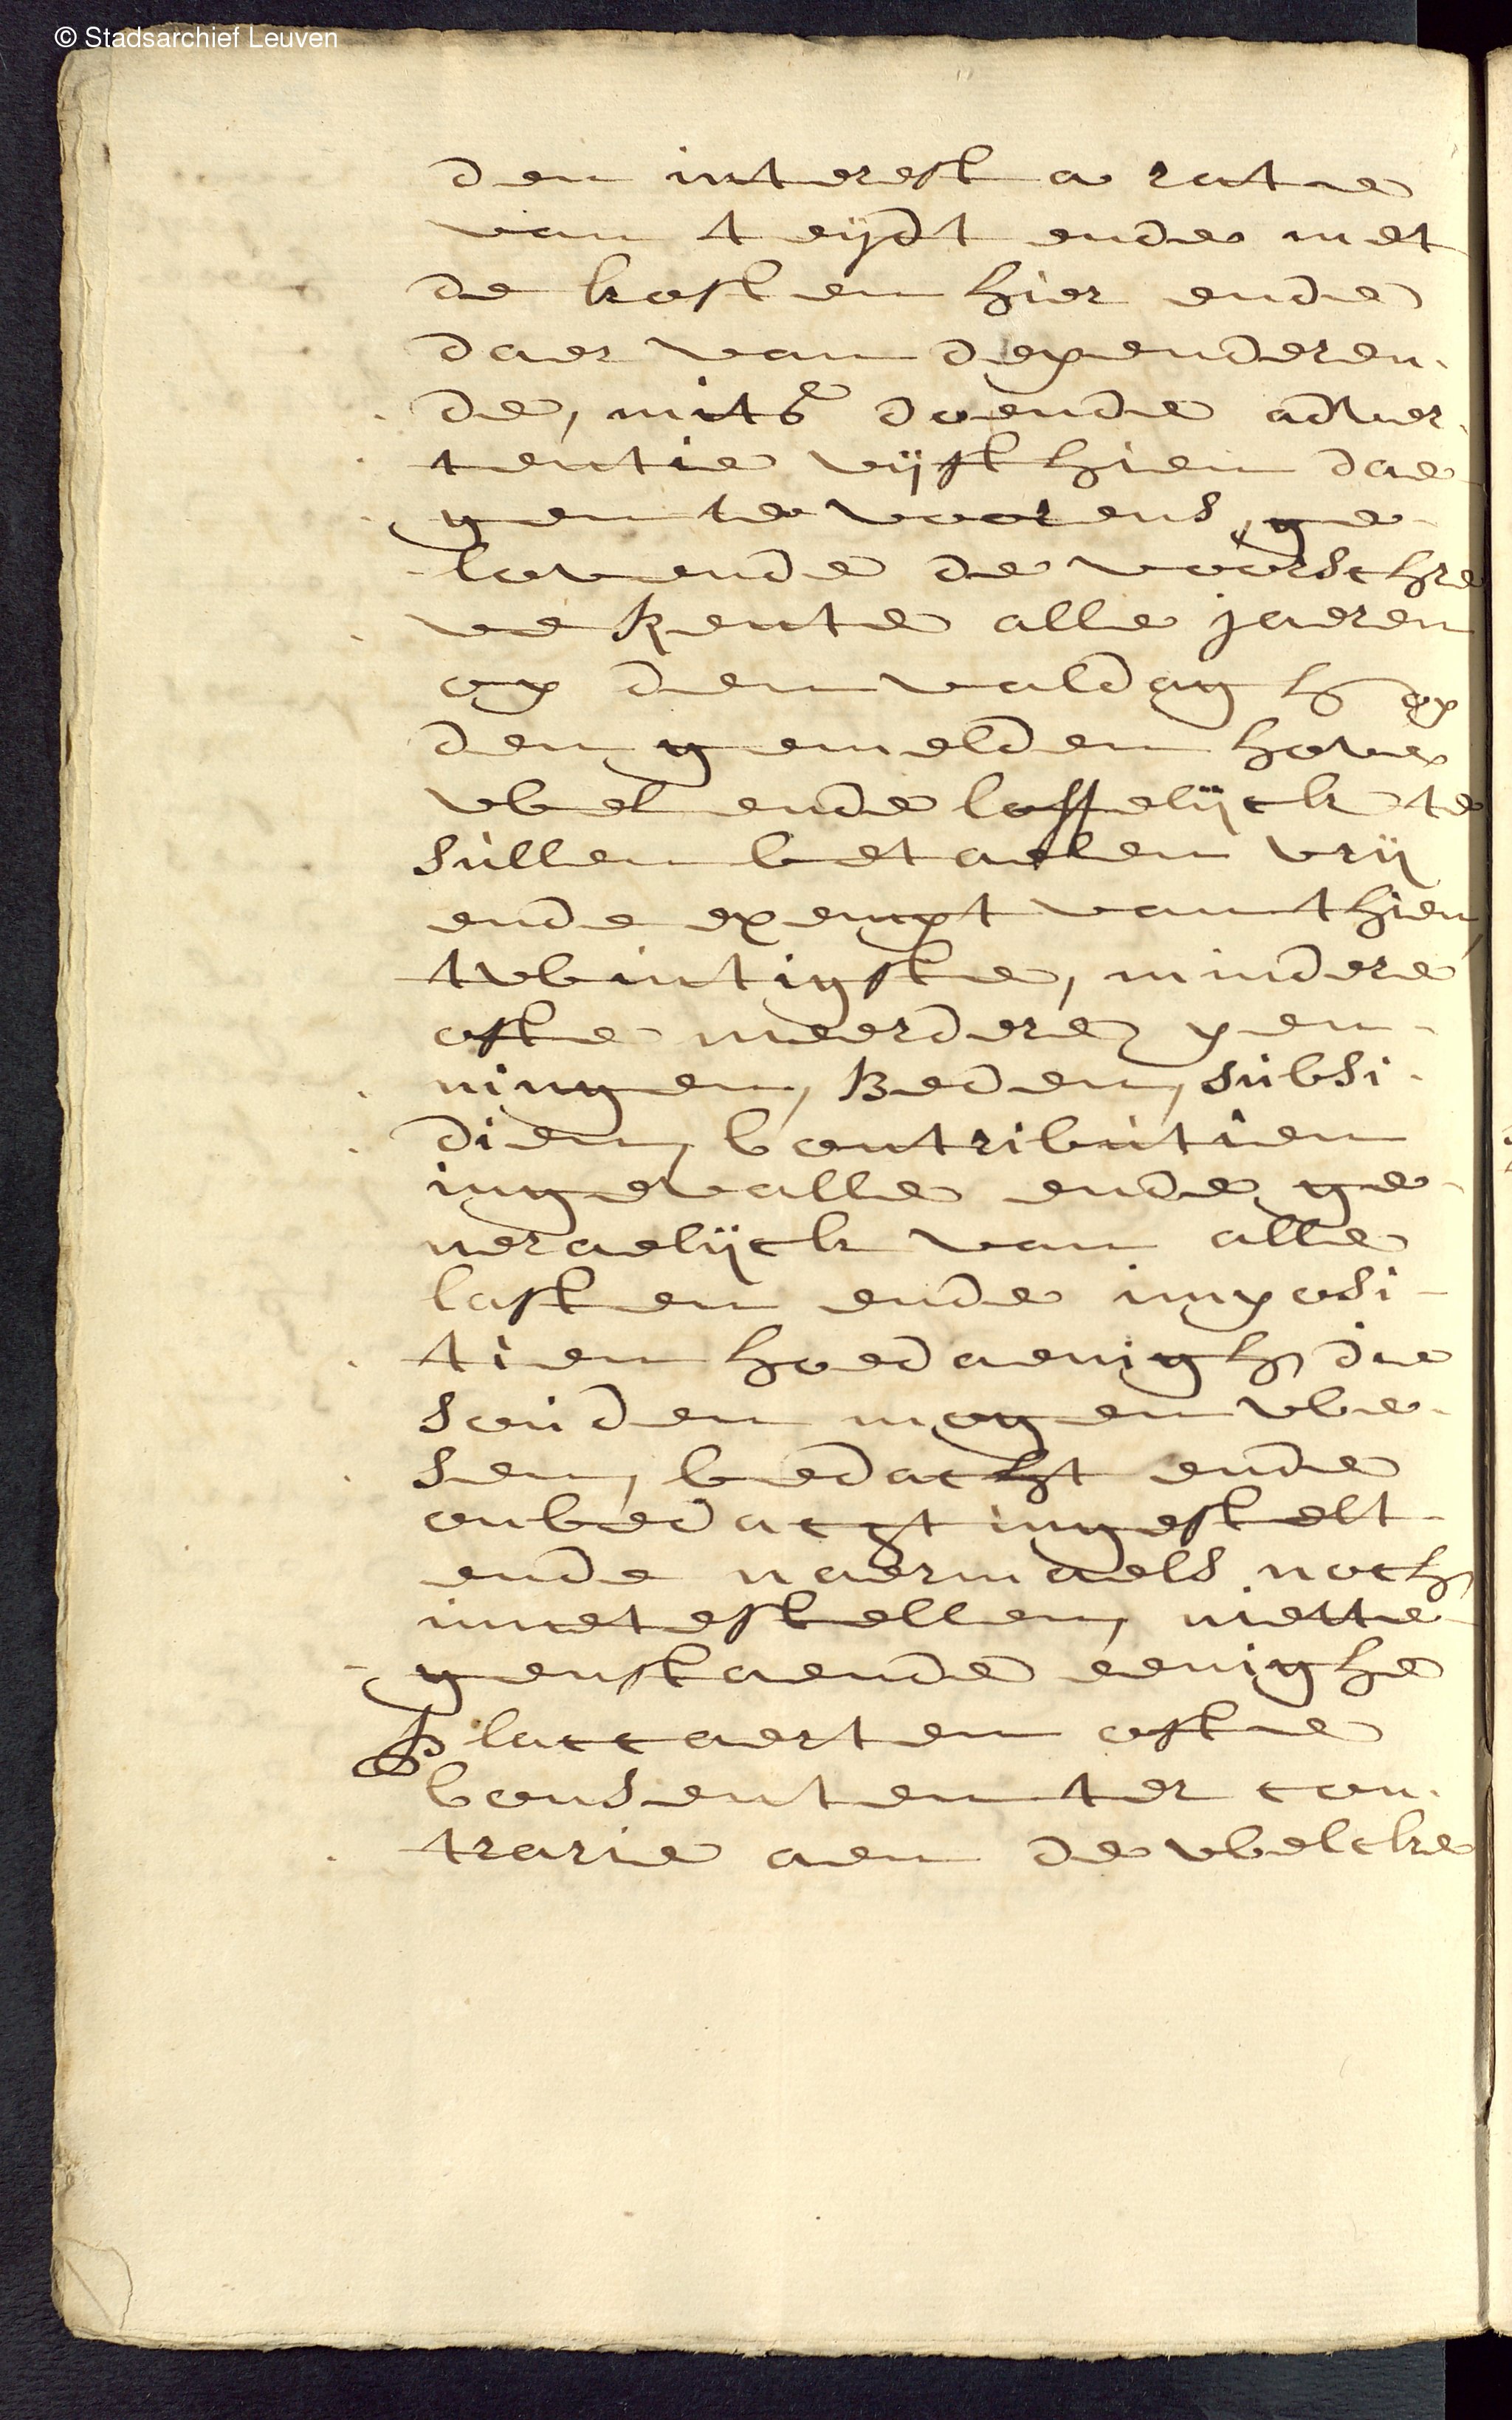 © Stadsarchief Leuven
den interest a rate
van teijdt ende met
de kosten hier ende
daer van dependeren-
de, mits doende adver-
tentie vijfthien dae-
gen te voorens, ge-
lovende de voorschre
ve Rente alle jaeren
op den valdagh op
den gemelden hove
wel ende loffelijck te
sullen betaelen vrij
ende exempt van thien
twintighste, mindere
ofte meerdere pen-
ningen, Beden, subsi-
dien, Contributien
ingevalle ende ge-
neraelijck van alle
lasten ende imposi-
tien hoedaenigh die
souden mogen we-
sen, bedacht ende
onbedacht ingestelt
ende naermaels noch
inne te stellen, niette-
genstaende eenighe
Placcaerten ofte
Consenten ter con-
trarie aen de welcke